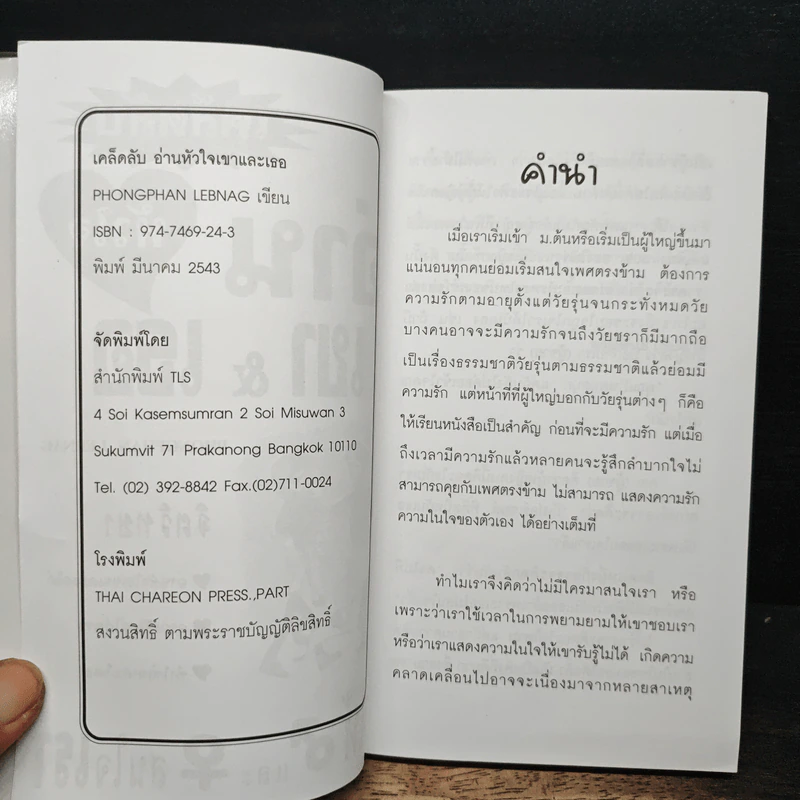 เคล็ดลับ อ่านหัวใจเขาและเธอ
PHONGPHAN LEBNAG เขียน
ISBN : 974-7469-24-3
พิมพ์ มีนาคม 2543
จัดพิมพ์โดย
สำนักพิมพ์ TLS
4 Soi Kasemsumran 2 Soi Misuwan 3
Sukumvit 71 Prakanong Bangkok 10110
Tel. (02) 392-8842 Fax.(02)711-0024
โรงพิมพ์
THAI CHAREON PRESS.,PART
สงวนสิทธิ์ ตามพระราชบัญญัติลิขสิทธิ์
คำนำ
เมื่อเราเริ่มเข้า ม.ต้นหรือเริ่มเป็นผู้ใหญ่ขึ้นมา
แน่นอนทุกคนย่อมเริ่มสนใจเพศตรงข้าม ต้องการ
ความรักตามอายุตั้งแต่วัยรุ่นจนกระทั่งหมดวัย
บางคนอาจจะมีความรักจนถึงวัยชราก็มีมากถือ
เป็นเรื่องธรรมชาติวัยรุ่นตามธรรมชาติแล้วย่อมมี
ความรัก แต่หน้าที่ที่ผู้ใหญ่บอกกับวัยรุ่นต่างๆ ก็คือ
ให้เรียนหนังสือเป็นสำคัญ ก่อนที่จะมีความรัก แต่เมื่อ
ถึงเวลามีความรักแล้วหลายคนจะรู้สึกลำบากใจไม่
สามารถคุยกับเพศตรงข้าม ไม่สามารถ แสดงความรัก
ความในใจของตัวเอง ได้อย่างเต็มที่
ทำไมเราจึงคิดว่าไม่มีใครมาสนใจเรา หรือ
เพราะว่าเราใช้เวลาในการพยายามให้เขาชอบเรา
หรือว่าเราแสดงความในใจให้เขารับรู้ไม่ได้ เกิดความ
คลาดเคลื่อนไปอาจจะเนื่องมาจากหลายสาเหตุ